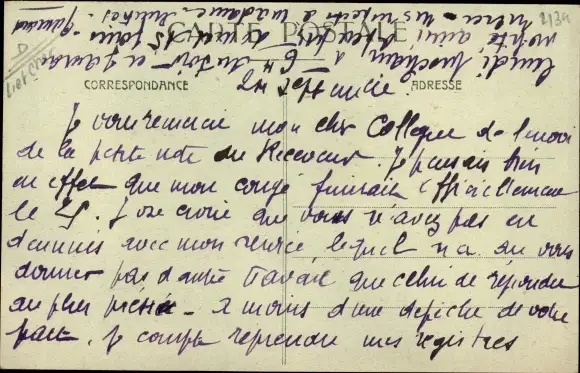 CARTE POSTALE
CORRESPONDANCE
ADRESSE
24 Septembre
Je vous remercie mon cher Collegue de l'envoi
de la petite note du Receveur. Je pensais bien
en effet que mon congé finirait officiellement
le 25. J'ose croire que vous n'avez pas eu
d'ennuis avec mon service, lequel n'a du vous
donner pas d'autre travail que celui de répondre
au plus pressé - à moins d'une dépêche de votre
part, je compte reprendre mes registres
lundi prochain à 6 H du soir et
votre ainsi 15 jours
mes respects à Madame